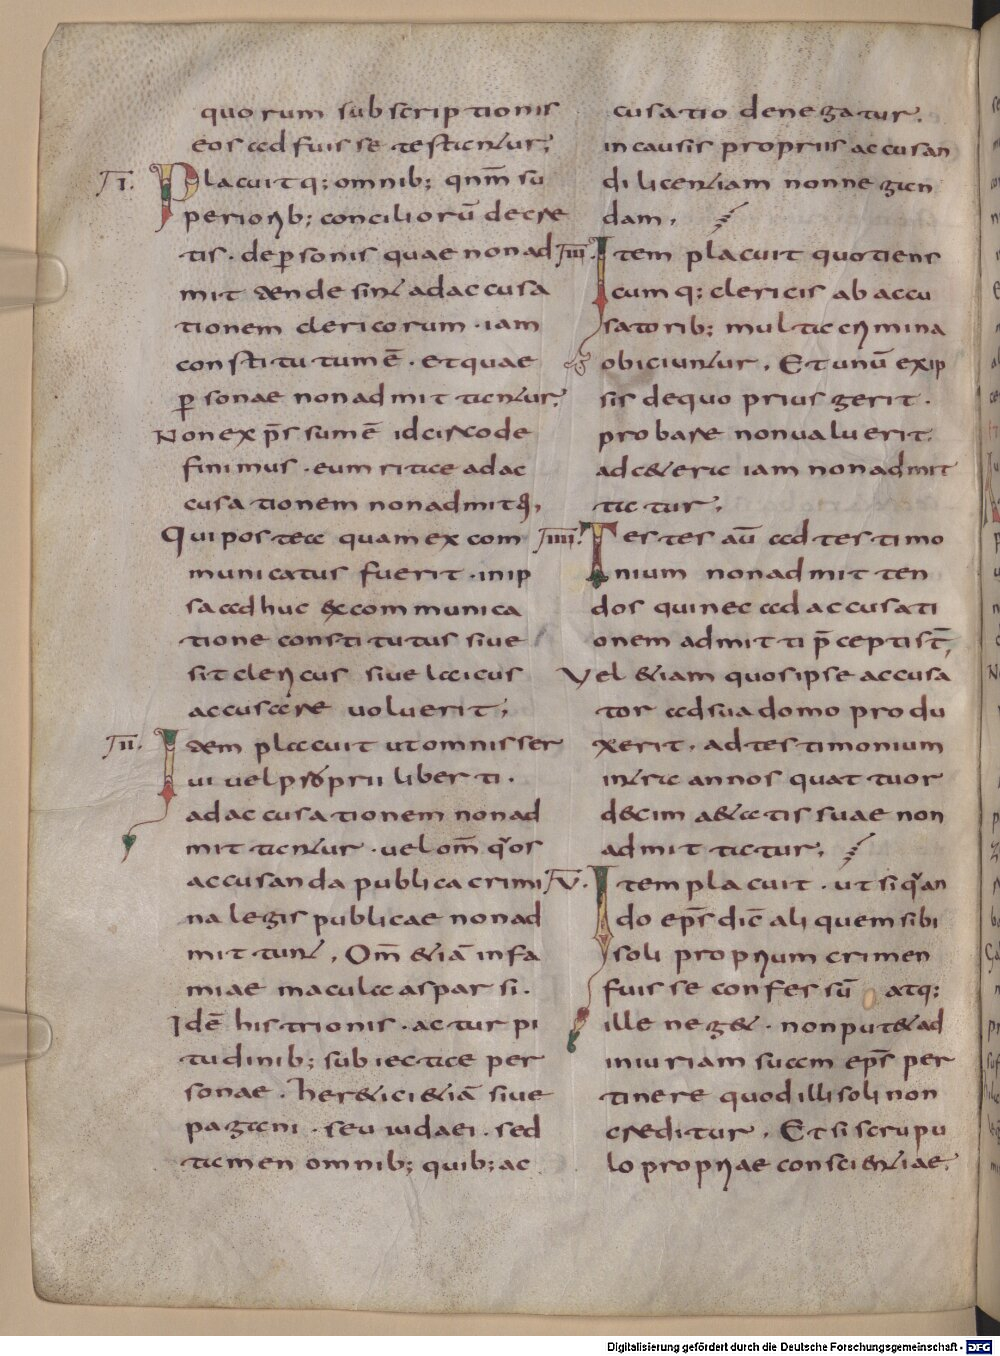 quorum subscriptionis
eos adfuisse testantur;
I. Placuit q; omnib; qnm̄ su
periorib; conciliorū decre
tis. de ꝑsonis quae non ad
mittendae sint ad accusa
tionem clericorum. iam
constitutum ē. et quae
ꝑsonae non admittantur,
Non exp̄ssum ē idcirco de
finimus. eum rite ad ac
cusationem non admitti,
Qui postea quam excom
municatus fuerit. in ip
sa adhuc excommunica
tione constitutus siue
sit clericus siue laicus
accusare uoluerit;
II. Idem placuit ut omnis ser
ui uel proprii liberti.
ad accusationem non ad
mittantur. uel om̄ quos
accusanda publica crimi
na legis publicae non ad
mittunt, Om̄ etiā infa
miae maculae asparsi.
Idē histrionis. ac turpi
tudinib; subiectae per
sonae. heretici etiā siue
pagani. seu iudaei. sed
tamen omnib; quib; ac
cusatio denegatur.
in causis propriis accusan
di licentiam non negan
dam,
III. Item placuit quotiens
cumq; clericis ab accu
satorib; multa crimina
obiciuntur, Et unū ex ip
sis de quo prius gerit.
probare non ualuerit.
ad cetera iam non admit
tatur,
IIII. Testes aū ad testimo
nium non admitten
dos qui nec ad accusati
onem admitti p̄cepti st̄,
Vel etiam quos ipse accusa
tor ad sua domo produ
xerit, ad testimonium
intra annos quattuor
decim aetatis suae non
admittatur,
V. Item placuit. ut si quan
do ep̄s dic̄ aliquem sibi
soli proprium crimen
fuisse confessū atq;
ille neget. non putet ad
iniuriam suam ep̄s per
tinere quod illi soli non
creditur, Et si scrupu
lo propriae conscientiae.
Digitalisierung gefördert durch die Deutsche Forschungsgemeinschaft - DFG